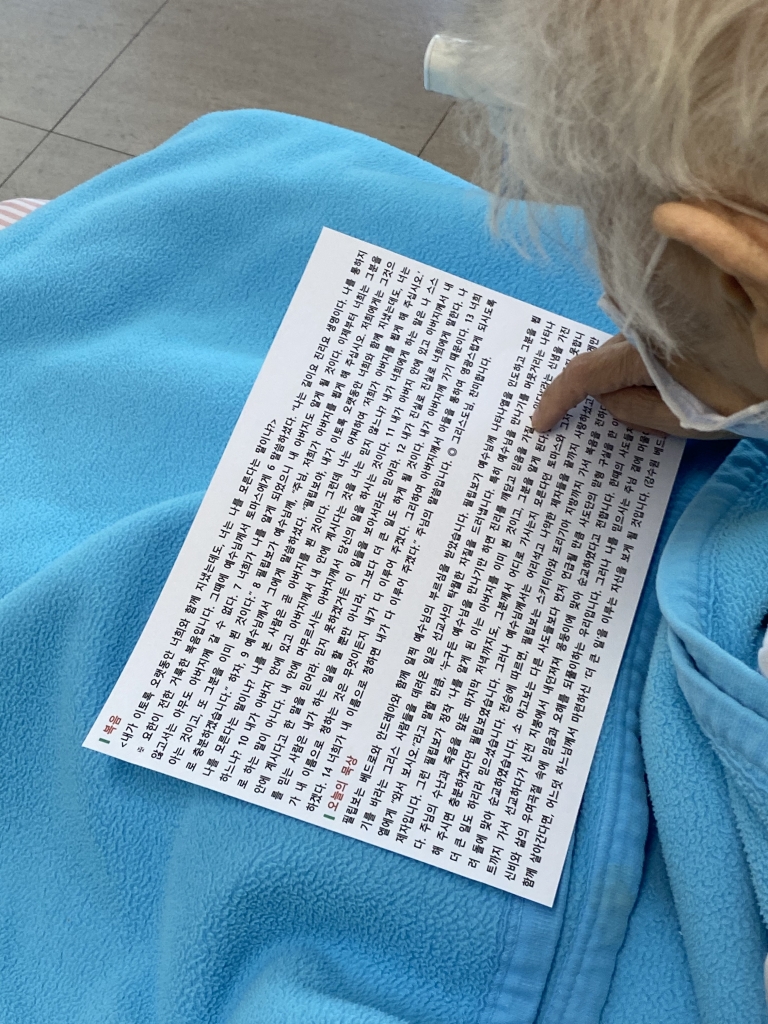 복음
<내가 이토록 오랫동안 너희와 함께 지냈는데도, 너는 나를 모른다는 말이냐?>
※ 요한이 전한 거룩한 복음입니다. 그때에 예수님께서 토마스에게 6 말씀하셨다. "나는 길이요 진리요 생명이다. 나를 통하지
않고서는 아무도 아버지께 갈 수 없다. 7 너희가 나를 알게 되었으니 내 아버지도 알게 될 것이다. 이제부터 너희는 그분을
아는 것이고, 또 그분을 이미 뵌 것이다." 8 필립보가 예수님께, "주님, 저희가 아버지를 뵙게 해 주십시오. 저희에게는 그것으
로 충분하겠습니다." 하자, 9 예수님께서 그에게 말씀하셨다. "필립보야, 내가 이토록 오랫동안 너희와 함께 지냈는데도, 너는
나를 모른다는 말이냐? 나를 본 사람은 곧 아버지를 뵌 것이다. 그런데 너는 어찌하여 '저희가 아버지를 뵙게 해 주십시오.'
하느냐? 10 내가 아버지 안에 있고 아버지께서 내 안에 계시다는 것을 너는 믿지 않느냐? 내가 너희에게 하는 말은 나 스스
로 하는 말이 아니다. 내 안에 머무르시는 아버지께서 당신의 일을 하시는 것이다. 11 내가 아버지 안에 있고 아버지께서 내
안에 계시다고 한 말을 믿어라. 믿지 못하겠거든 이 일들을 보아서라도 믿어라. 12 내가 진실로 진실로 너희에게 말한다. 나
를 믿는 사람은 내가 하는 일을 할 뿐만 아니라, 그보다 더 큰 일도 하게 될 것이다. 내가 아버지께 가기 때문이다. 13 너희
가 내 이름으로 청하는 것은 무엇이든지 내가 다 이루어 주겠다. 그리하여 아버지께서 아들을 통하여 영광스럽게 되시도록
하겠다. 14 너희가 내 이름으로 청하면 내가 다 이루어 주겠다." 주님의 말씀입니다. ◎ 그리스도님, 찬미합니다.
오늘의 묵상
필립보는 베드로와 안드레아와 함께 일찍 예수님의 부르심을 받았습니다. 필립보가 예수님께 나타나엘을 인도하고 그분을 뵙
기를 바라는 그리스 사람들을 데려온 일은 선교사의 탁월한 자질을 드러냅니다. 특히 예수님을 만나기를 머뭇거리는 나타나
엘에게 "와서 보시오."라고 말할 만큼, 누구든 예수님을 만나기만 하면 진리를 깨닫고 믿음을 가질 신념을 가진
제자입니다. 그런 필립보가 정작 '나를 알게 된 이는 아버지를 이미 뵌 것이고, 그분을 알게 된다
다. 주님의 수난과 죽음을 앞둔 마지막 저녁까지도, 그분께서 어디로 가시는지 모른다던 토마스와 그저
해 주시면 충분하겠다던 필립보였습니다. 그러나 예수님께서는 어리석고 나약한 제자들을 끝까지 사랑하셨고
더 큰 일도 하리라 믿으셨습니다. 전승에 따르면, 필립보는 스키티아와 프리기아 지방까지 가서 복음을 전하
러 돌에 맞아 순교하였습니다. 소 야고보는 다른 사도들보다 먼저 언급될 만큼 사도단의 맏형 구실을 한
트까지 가서 선교하다가 신전 지붕에서 내던져져 몽둥이에 맞아 순교하였다고 전합니다. 한때의 사도들
신비와 삶의 우여곡절 속에 믿음과 오해를 되풀이하는 우리입니다. 그러나 나를 믿으시는 주님 곁에 머물
함께 살아간다면, 어느덧 하느님께서 마련하신 '더 큰 일'을 이루는 자신을 보게 될 것입니다. (강수원 베드